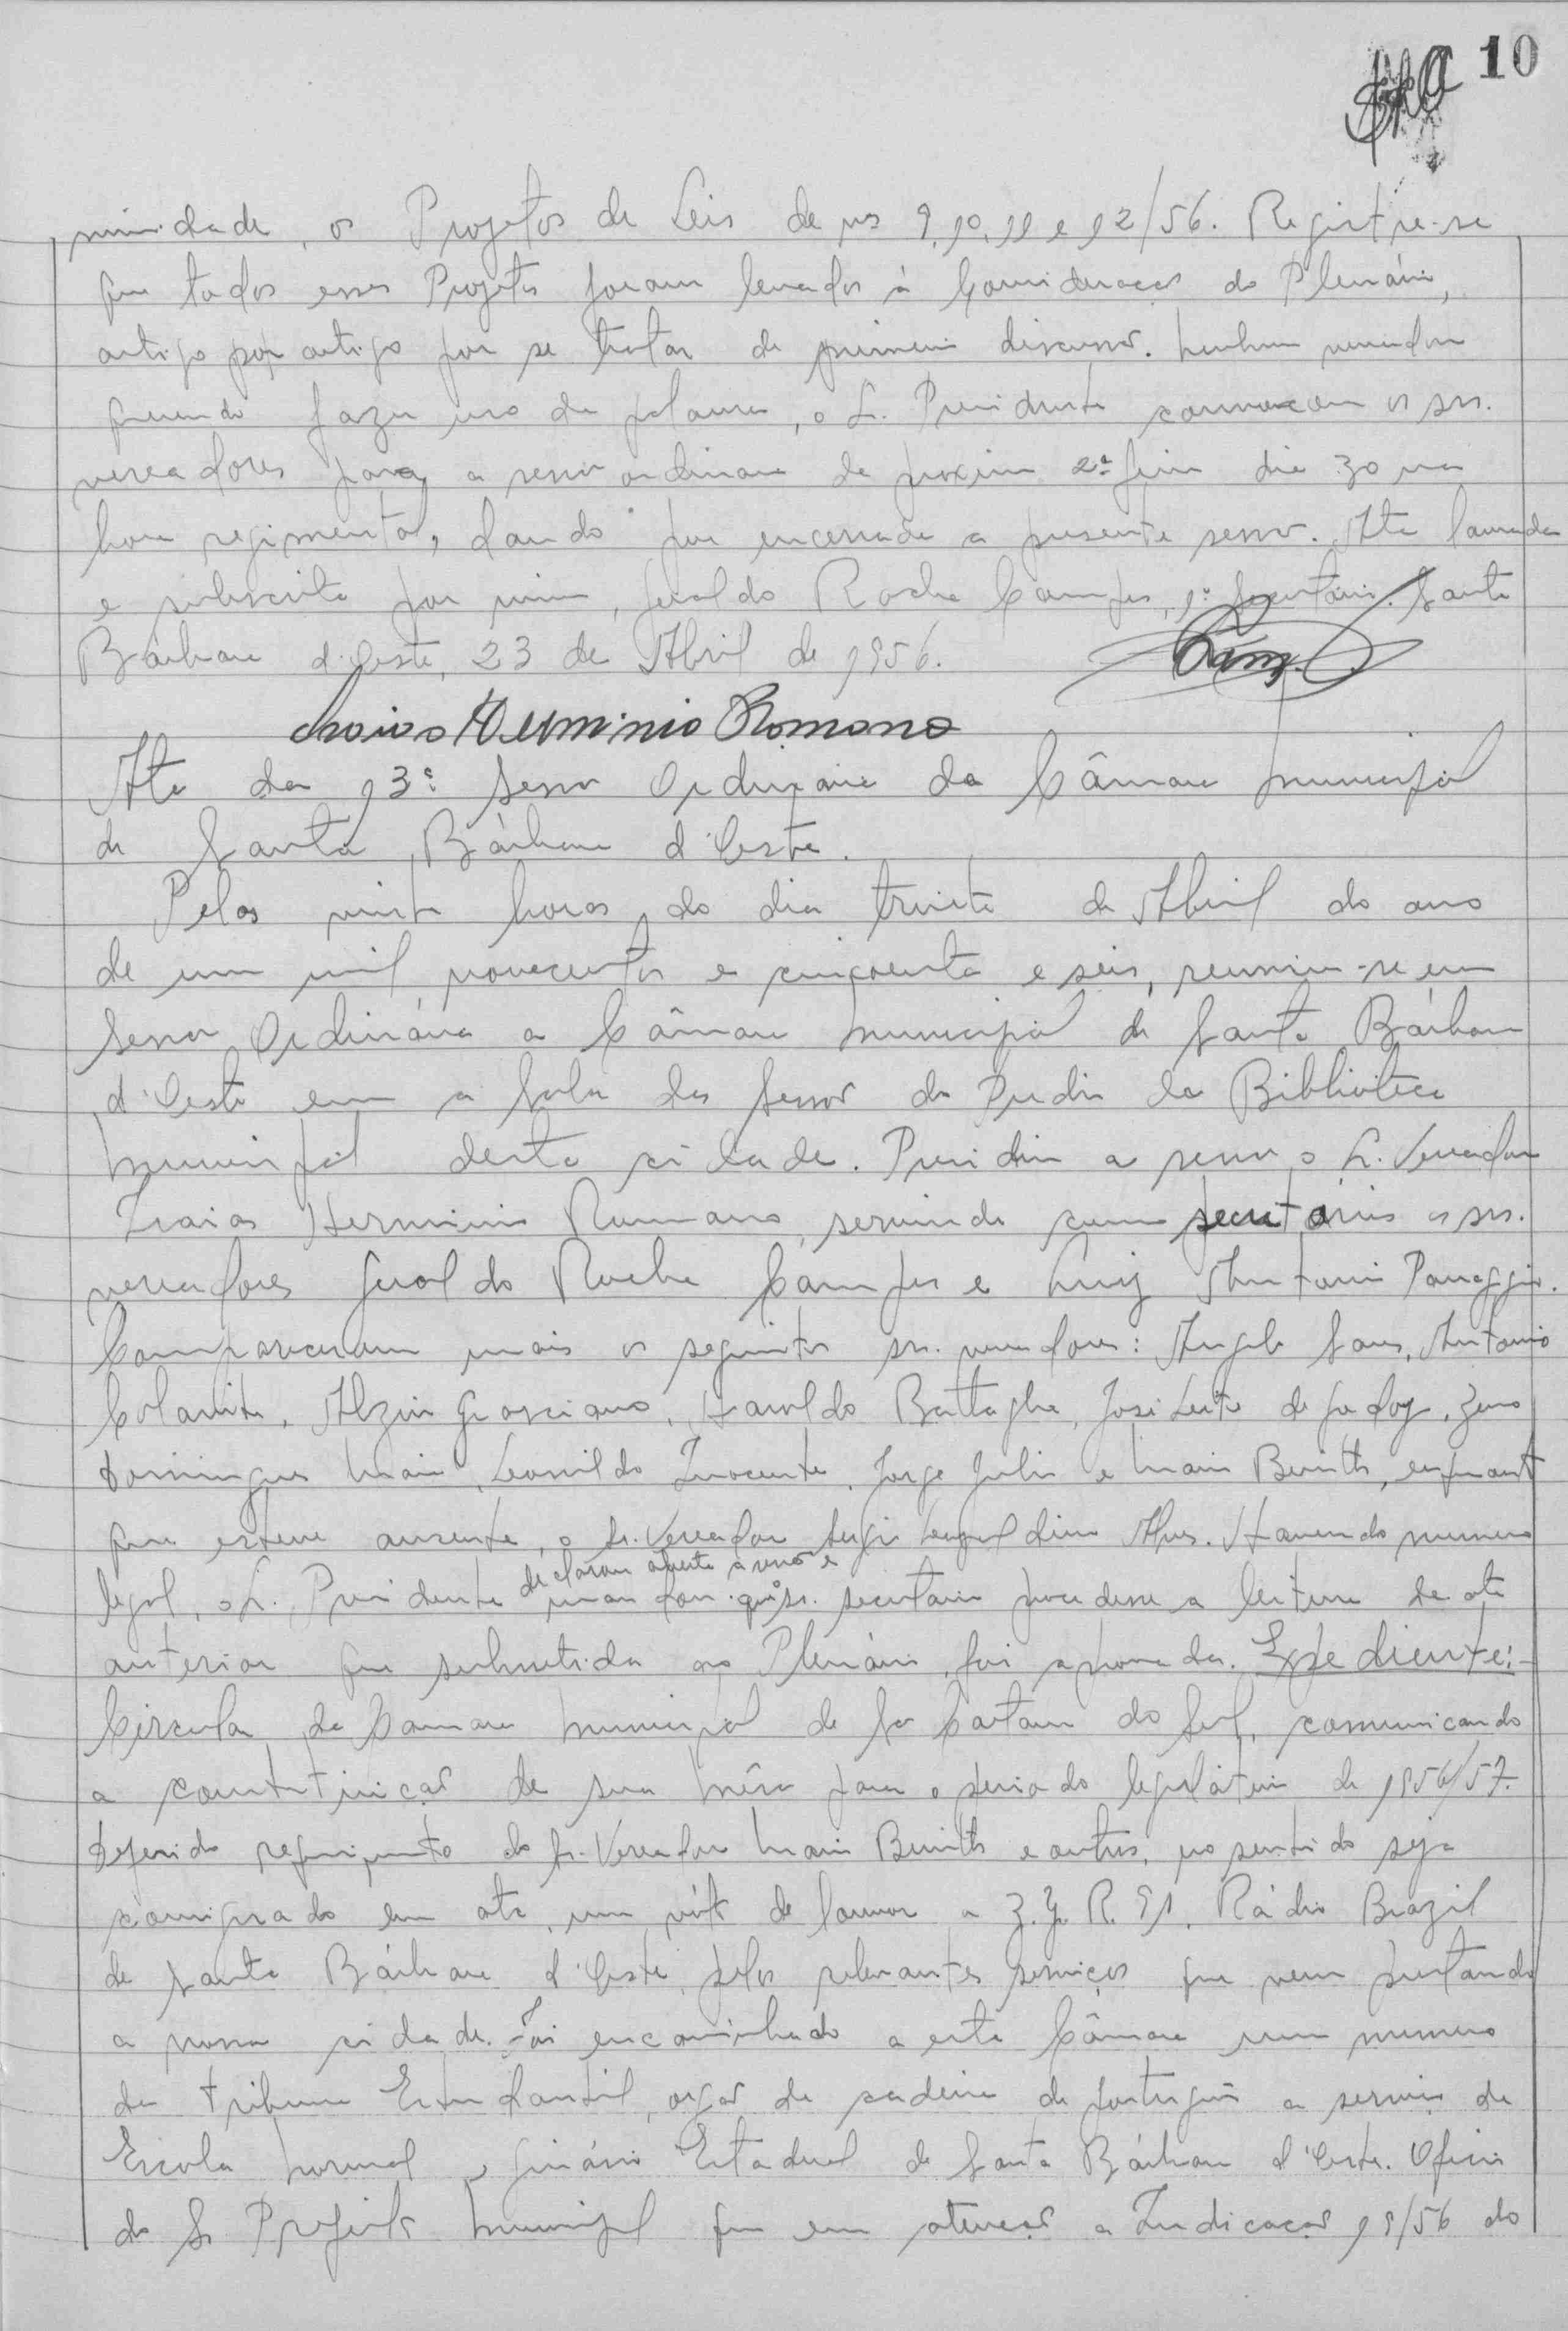 10
nimidade, os Projetos de Leis de nos 9, 10, 11 e 12/56. Registre-se
que todos esses Projetos foram levados à Consideração do Plenário,
artigo por artigo por se tratar de primeira discussão. Nenhum vereador
querendo fazer uso da palavra, o Sr. Presidente convocou os srs.
vereadores para a sessão ordinaria da proxima 2ª feira dia 30 na
hora regimental, dando por encerrada a presente sessão. Ata lavrada
e subscrita por mim, Geraldo Rocha Campos, 1º Secretário. Santa
Bárbara d'Oeste, 23 de Abril de 1956.
Isaias Herminio Romano
Ata da 13ª Sessão Ordinaria da Câmara Municipal
de Santa Bárbara d'Oeste.
Pelas vinte horas do dia trinta de Abril do ano
de um mil novecentos e cincoenta e seis, reuniu-se em
Sessão Ordinária a Câmara Municipal de Santa Bárbara
d'Oeste em a Sala das Sessões do Predio da Biblioteca
Municipal desta cidade. Presidiu a sessão o Sr. Vereador
Isaias Herminio Romano, servindo como secretários os srs.
vereadores Geraldo Rocha Campos e Luiz Antonio Panaggio.
Compareceram mais os seguintes srs. vereadores: Angelo Sans, Antonio
Alzin Graciano, Haroldo Battaglia, José Leite de Godoy, Zeno
Domingues Maia, Leonildo Inocente, Jorge Julio e Mario Benith, enquanto
que esteve ausente, o Sr. Vereador Alves. Havendo numero
legal, o Sr. Presidente declarou aberta a sessão e mandou que o sr. secretario procedesse a leitura da ata
anterior que submetida ao Plenário, foi aprovada. Expediente:-
Circular da Camara Municipal de São Caetano do Sul, comunicando
a constituição de sua Mêsa para o periodo legislativo de 1956/57.
Deferido requerimento do Sr. Vereador Mario Benith e outros, no sentido seja
consignado em ata, um vóto de louvor a Z.Y.R. 91, Rádio Brazil
de Santa Bárbara d'Oeste pelos relevantes serviços que vem prestando
a nossa cidade. Foi encaminhado a esta Câmara um numero
da Tribuna Estudantil, orgão da cadeira de português a serviço da
Escola Normal e Ginásio Estadual de Santa Bárbara d'Oeste. Oficio
do Sr. Prefeito Municipal que em atenção a Indicação 19/56 do